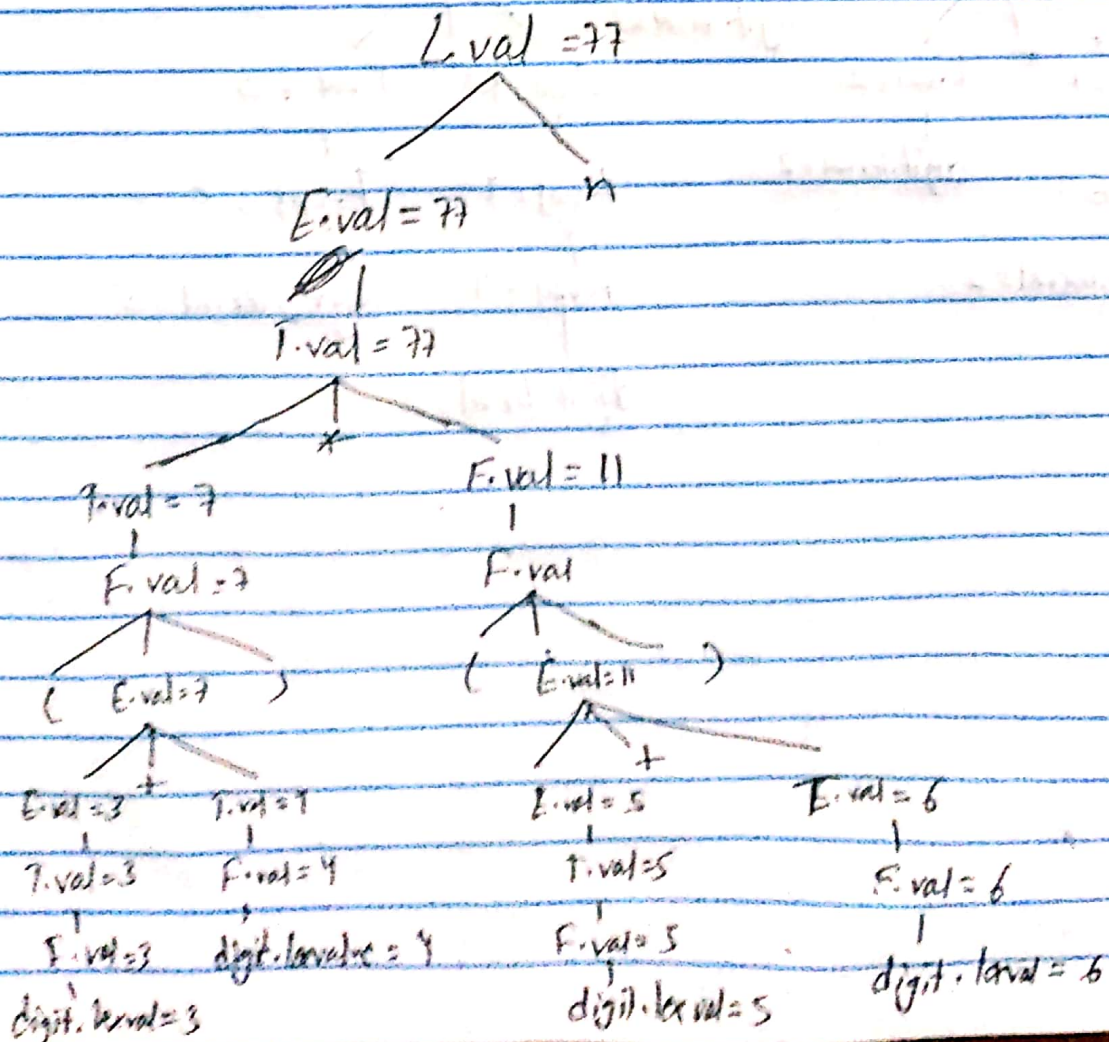 L.val = 77
E.val = 77 n
T.val = 77
*
T.val = 7 F.val = 11
F.val = 7 F.val
( E.val = 7 ) ( E.val = 11 )
+ +
E.val = 3 T.val = 4 E.val = 5 T.val = 6
T.val = 3 F.val = 4 T.val = 5 F.val = 6
F.val = 3 digit.lexvalue = 4 F.val = 5 digit.lexval = 6
digit.lexval = 3 digit.lexval = 5